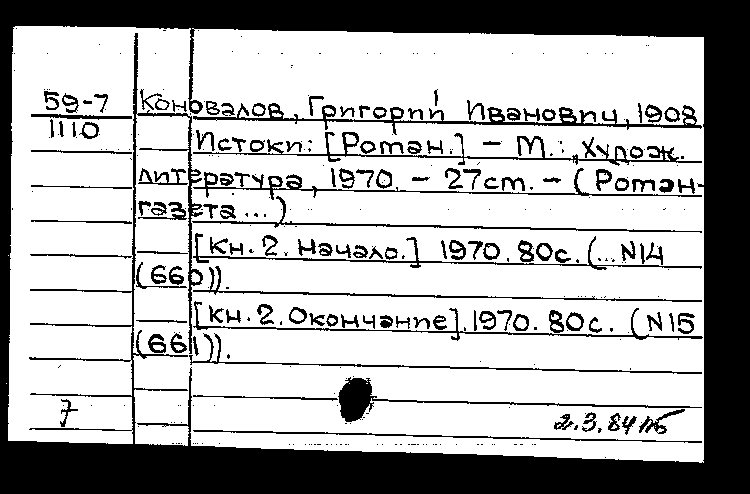 59-7 Коновалов, Григорий Иванович, 1908
1110 Истоки: [Роман.] – М.: Худож.
литература, 1970. – 27см. – (Роман-
газета...)
[Кн. 2. Начало.] 1970. 80с. (...N14
(660)).
[Кн. 2. Окончание]. 1970. 80с. (N15
(661)).
7 2.3.84